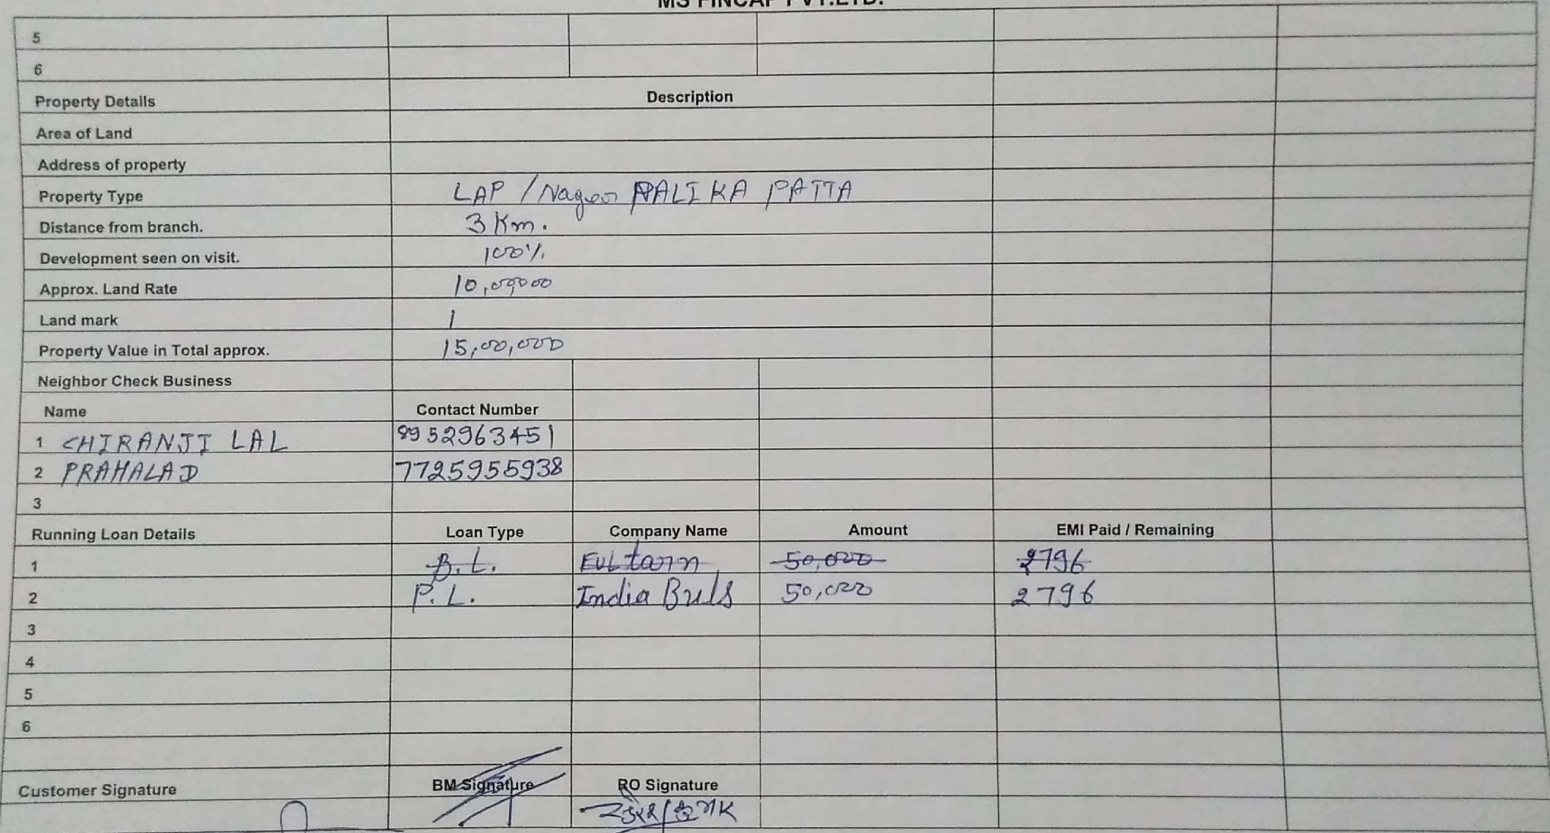 MS FINCAP PVT.LTD.
5
6
Property Details Description
Area of Land
Address of property
Property Type LAP / Nagar PALIKA PATTA
Distance from branch. 3 Km.
Development seen on visit. 100%
Approx. Land Rate
Land mark
Property Value in Total approx. 15,00,000
Neighbor Check Business
Name Contact Number
1 CHIRANJI LAL 8952963451
2 PRAHALAD 7725955938
3
Running Loan Details Loan Type Company Name Amount EMI Paid / Remaining
1 B.L. 50,000 2796
2 P.L. India Buls 50,000 2796
3
4
5
6
Customer Signature BM Signature RO Signature